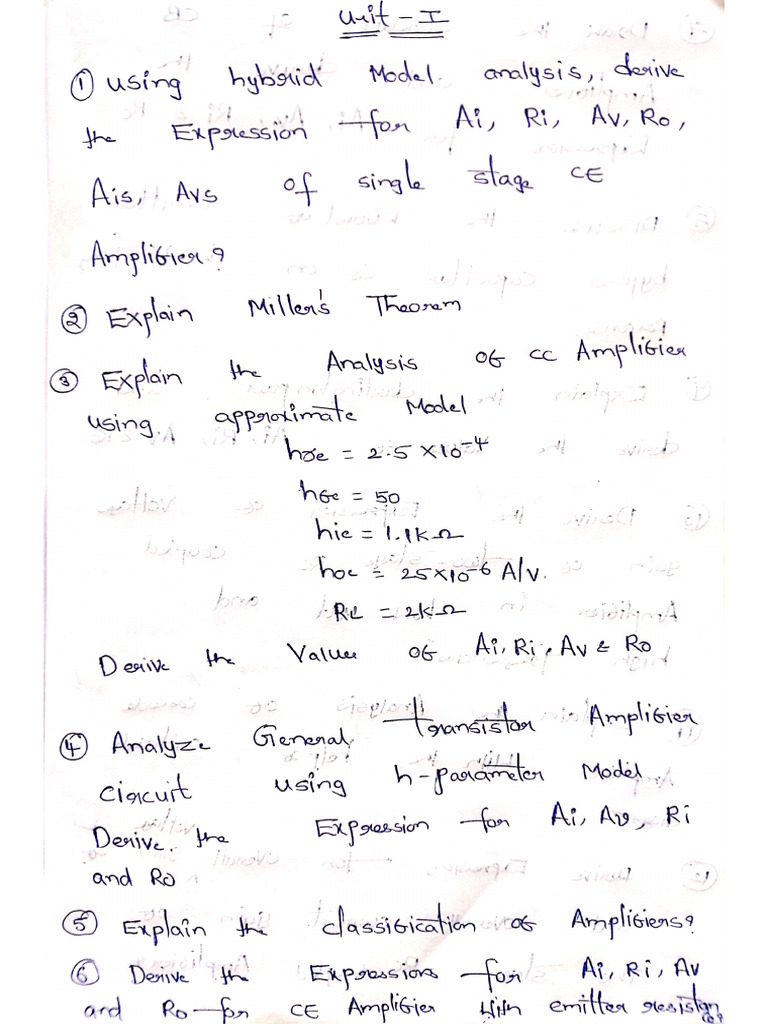 Unit - I
① Using hybrid Model analysis, derive
the Expression for Ai, Ri, Av, Ro,
Ais, Avs of single stage CE
Amplifier?
② Explain Miller's Theorem
③ Explain the Analysis of CC Amplifier
using approximate Model
hre = 2.5 × 10⁻⁴
hfe = 50
hie = 1.1kΩ
hoe = 25×10⁻⁶ A/V.
RL = 2kΩ
Derive the Values of Ai, Ri, Av & Ro
④ Analyze General transistor Amplifier
circuit using h-parameter Model
Derive the Expression for Ai, Av, Ri
and Ro
⑤ Explain the classification of Amplifiers?
⑥ Derive the Expressions for Ai, Ri, Av
and Ro for CE Amplifier with emitter